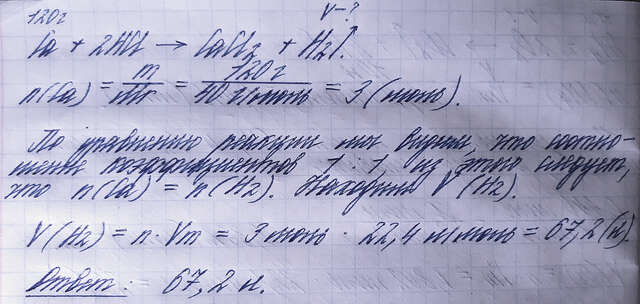 120г V-?
Ca + 2HCl → CaCl₂ + H₂↑.
n(Ca) = m/Mr = 120г/40 г/моль = 3 (моль).
По уравнению реакции мы видим, что соотно-
шение коэффициентов 1 : 1, из этого следует,
что n(Ca) = n(H₂). Находим V(H₂).
V(H₂) = n · Vm = 3 моль · 22,4 л/моль = 67,2 (л).
Ответ: 67,2 л.